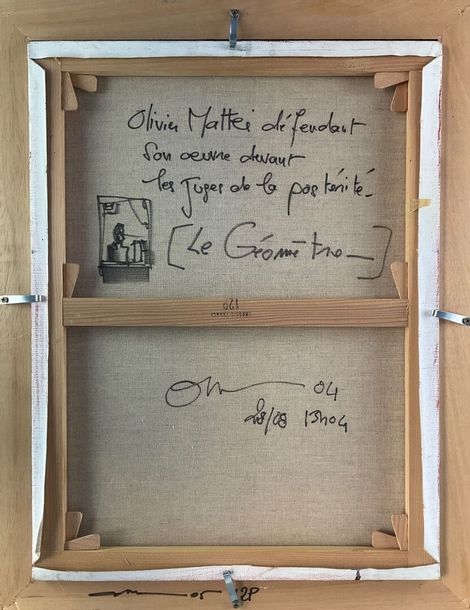 Olivier Mattei défendant
son oeuvre devant
les Juges de la postérité_
[Le Géomètre_]
12P
04
28/08 13h04
05 12P